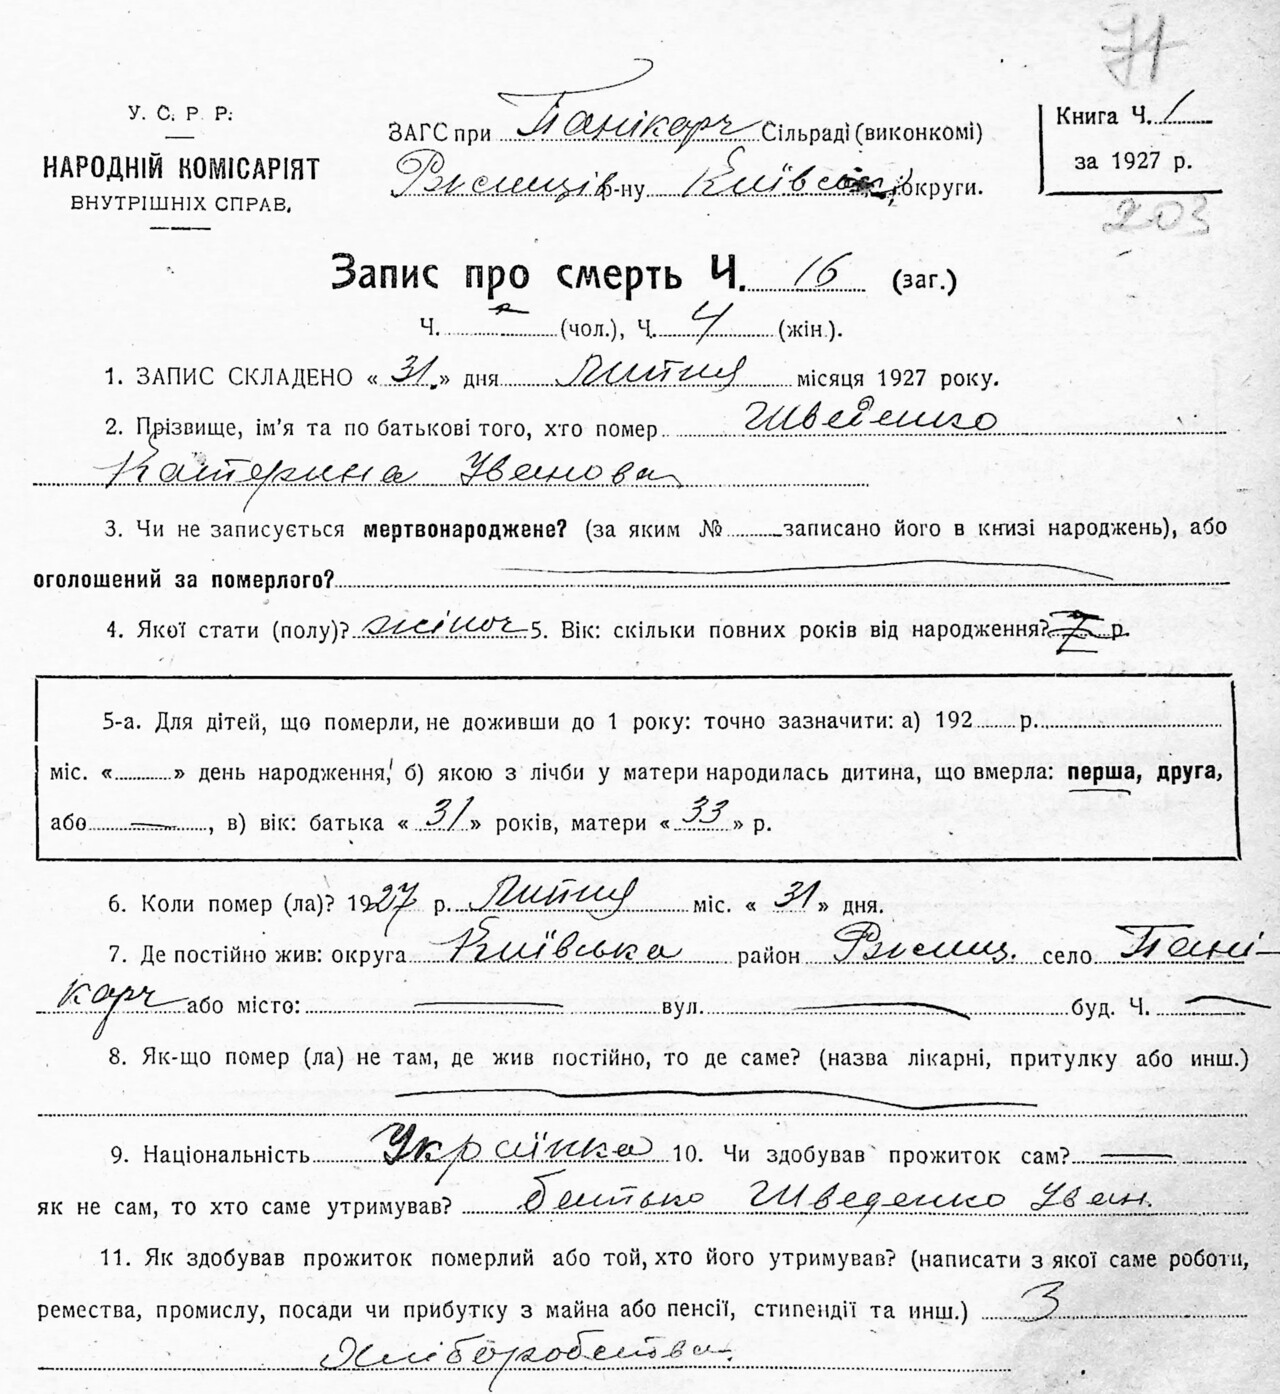 71
У. С. Р. Р.
НАРОДНІЙ КОМІСАРІЯТ
ВНУТРІШНІХ СПРАВ.
ЗАГС при Панікарч Сільраді (виконкомі)
Ржищів р-ну Київської округи.
Книга Ч. 1
за 1927 р.
203
Запис про смерть Ч. 16 (заг.)
Ч. (чол.), Ч. 4 (жін.).
1. ЗАПИС СКЛАДЕНО «31.» дня Липня місяця 1927 року.
2. Прізвище, ім'я та по батькові того, хто помер Шведенко
Катерина Іванова
3. Чи не записується мертвонароджене? (за яким № записано його в книзі народжень), або
оголошений за померлого?
4. Якої стати (полу)? жіноч 5. Вік: скільки повних років від народження? р.
5-а. Для дітей, що померли, не доживши до 1 року: точно зазначити: а) 192 р.
міс. « » день народження, б) якою з лічби у матери народилась дитина, що вмерла: перша, друга,
або — , в) вік: батька «31» років, матери «33» р.
6. Коли помер (ла)? 1927 р. Липня міс. «31» дня.
7. Де постійно жив: округа Київська район Ржищ. село Пані-
карч або місто: — вул. — буд. Ч. —
8. Як-що помер (ла) не там, де жив постійно, то де саме? (назва лікарні, притулку або инш.)
9. Національність Українка 10. Чи здобував прожиток сам? —
як не сам, то хто саме утримував? батько Шведенко Іван.
11. Як здобував прожиток померлий або той, хто його утримував? (написати з якої саме роботи,
ремества, промислу, посади чи прибутку з майна або пенсії, стипендії та инш.) З
Хліборобства.